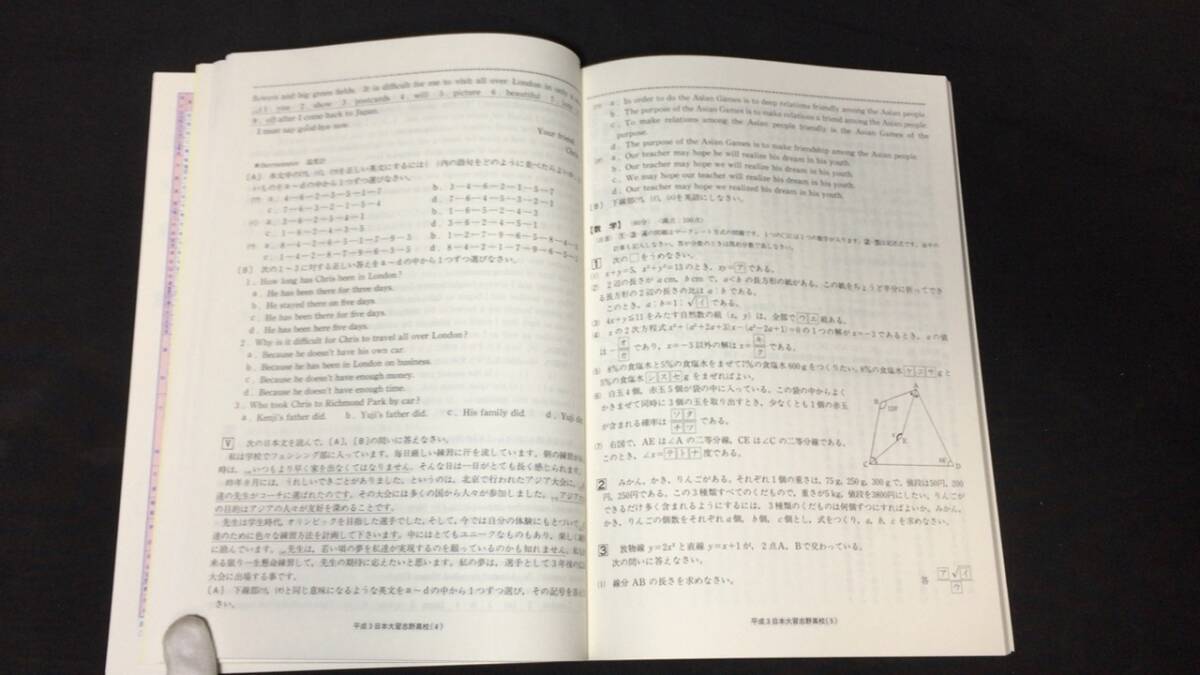 flowers and big green fields. It is difficult for me to visit all over London in only
1 me 2 show 3 postcards 4 will 5 picture 6 beautiful 7
8 all after I come back to Japan.
I must say good-bye now.
Your friend,
Chris
*thermometer 温度計
〔A〕 本文中の(ア), (イ), (ウ)を正しい英文にするには( )内の語句をどのように並べたらよいか。
いものをa～dの中から1つずつ選びなさい。
(ア) a. 4－6－2－3－5－1－7 b. 3－4－6－2－1－5－7
c. 7－6－3－2－1－5－4 d. 7－6－4－5－3－2－1
(イ) a. 3－6－2－5－4－1 b. 1－6－5－2－4－3
c. 1－6－2－4－3－5 d. 3－6－2－4－5－1
(ウ) a. 8－4－2－6－5－1－7－9－3 b. 1－2－7－9－6－5－8－4－3
c. 1－4－2－8－7－9－6－3－5 d. 8－4－2－1－7－9－6－5－3
〔B〕 次の1～3に対する正しい答えをa～dの中から1つずつ選びなさい。
1. How long has Chris been in London?
a. He has been there for three days.
b. He stayed there on five days.
c. He has been there for five days.
d. He has been here five days.
2. Why is it difficult for Chris to travel all over London?
a. Because he doesn't have his own car.
b. Because he has been in London on business.
c. Because he doesn't have enough money.
d. Because he doesn't have enough time.
3. Who took Chris to Richmond Park by car?
a. Kenji's father did. b. Yuji's father did. c. His family did. d. Yuji did.
Ⅴ 次の日本文を読んで,〔A〕,〔B〕の問いに答えなさい。
私は学校でフェンシング部に入っています。毎日厳しい練習に汗を流しています。朝の練習が
時は, いつもより早く家を出なくてはなりません。そんな日は一日がとても長く感じられます。
昨年9月には, うれしいできごとがありました。というのは, 北京で行われたアジア大会に,
達の先生がコーチに選ばれたのです。その大会には多くの国から人々が参加しました。アジア
の目的はアジアの人々が友好を深めることです。
先生は学生時代, オリンピックを目指した選手でした。そして, 今では自分の体験にもとづいて
達のために色々な練習方法を計画して下さいます。中にはとてもユニークなものもあり, 楽しく
に励んでいます。先生は, 若い頃の夢を私達が実現するのを願っているのかも知れません。私も
来る限り一生懸命練習して, 先生の期待に応えたいと思います。私の夢は, 選手として3年後の
大会に出場する事です。
〔A〕 下線部と同じ意味になるような英文をa～dの中から1つずつ選び, その記号を答え
さい。
平成3日本大習志野高校(4)
a. In order to do the Asian Games is to deep relations friendly among the Asian people.
b. The purpose of the Asian Games is to make relations a friend among the Asian people.
c. To make relations among the Asian people friendly is the Asian Games of the
purpose.
d. The purpose of the Asian Games is to make friendship among the Asian people.
a. Our teacher may hope he will realize his dream in his youth.
b. Our teacher may hope we will realize his dream in his youth.
c. We may hope our teacher will realize his dream in his youth.
d. Our teacher may hope we realized his dream in his youth.
〔B〕 下線部(ア), (イ), (エ)を英語にしなさい。
【数 学】 (60分) 〈満点：100点〉
1 次の□をうめなさい。
(1) x+y=5, x²+y²=13のとき, xy=アである。
(2) 2辺の長さがa cm, b cmで, a<bの長方形の紙がある。この紙をちょうど半分に折ってでき
る長方形の2辺の長さの比はa：bである。
このとき, a：b=1：√イである。
(3) 4x+y≦11をみたす自然数の組(x, y)は, 全部でウエ組ある。
(4) xの2次方程式x²+(a²+2a+3)x-(a²-2a+1)=0の1つの解がx=-3であるとき, aの値
は-オ/カであり, x=-3以外の解はx=キ/クである。
(5) 8%の食塩水と5%の食塩水をまぜて7%の食塩水600gをつくりたい。8%の食塩水ケコサgと
5%の食塩水シスセgをまぜればよい。
(6) 白玉4個, 赤玉5個が袋の中に入っている。この袋の中からよく
かきまぜて同時に3個の玉を取り出すとき, 少なくとも1個の赤玉
が含まれる確率はソタ/チツである。
(7) 右図で, AEは∠Aの二等分線, CEは∠Cの二等分線である。
このとき, ∠x=テトナ度である。
A
B
x
E
C
D
2 みかん, かき, りんごがある。それぞれ1個の重さは, 75g, 250g, 300gで, 値段は50円, 200
円, 250円である。この3種類すべてのくだもので, 重さが5kg, 値段を3800円にしたい。りんごが
できるだけ多く含まれるようにするには, 3種類のくだものは何個ずつにすればよいか。みかん,
かき, りんごの個数をそれぞれa個, b個, c個とし, 式をつくり, a, b, cを求めなさい。
3 放物線y=2x²と直線y=x+1が, 2点A, Bで交わっている。
次の問いに答えなさい。
(1) 線分ABの長さを求めなさい。 答 ア√イ/ウ
平成3日本大習志野高校(5)